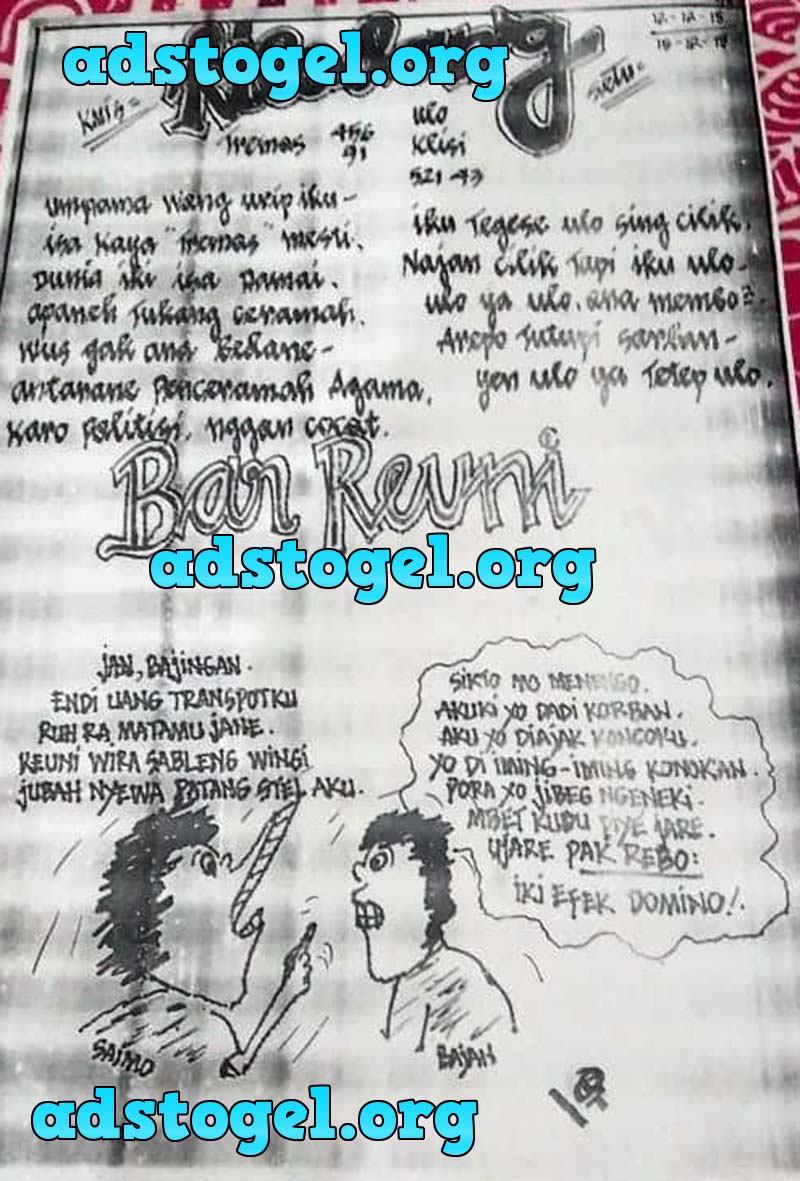 adstogel.org
Kmis=
sktu=
memas 456
91
ulo
Klisi
521-93
umpama wong urip iku-
isa kaya "memas" mesti.
Dunia iki isa Damai.
apaneh Tukang ceramah.
wus gak ana Bedane-
antarane Penceramah Agama.
karo Politisi. nggan cocot.
iku Tegese ulo sing cilik.
Najan cilik Tapi iku ulo-
ulo ya ulo. ana membo2.
Arepo Tutupi sarban-
yen ulo ya Tetep ulo.
Bar Reuni
adstogel.org
JAN, BAJINGAN.
ENDI UANG TRANSPOTKU
RUH RA MATAMU JANE.
REUNI WIRA SABLENG WINGI
JUBAH NYEWA PATANG STEL AKU.
SIKTO MO MENENGO.
AKUKI YO DADI KORBAN.
AKU YO DIAJAK KONCOKU.
YO DI IMING-IMING KONOKAN.
PORA YO JIBEG NGENEKI.
MBET KUDU PIYE JARE.
UJARE PAK REBO:
IKI EFEK DOMINO!.
SAIMO
BAJAH
adstogel.org